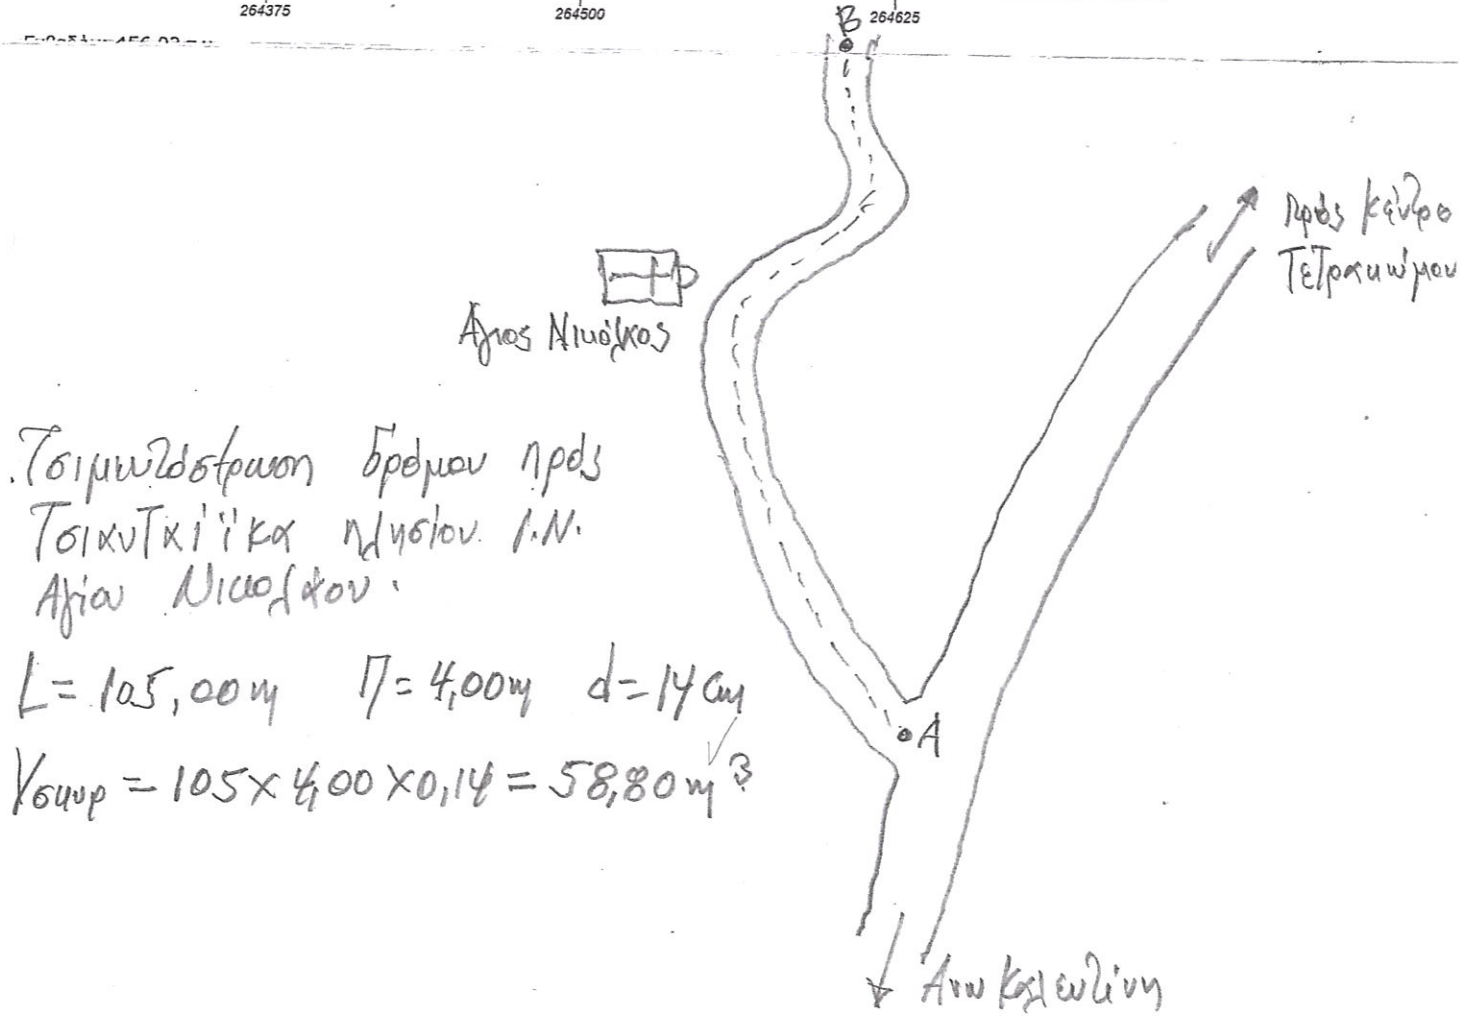 264375 264500 264625
B
Προς κέντρο
Τετρακώμου
Άγιος Νικόλαος
Τσιμεντόστρωση δρόμου προς
Τσιανταίϊκα πλησίον Ι.Ν.
Αγίου Νικολάου.
L = 105,00m Π = 4,00m d = 14 cm
A
Vσκυρ = 105 × 4,00 × 0,14 = 58,80 m³
Άνω Καλεντίνη